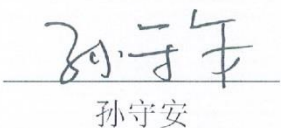 孙守安
孙守安